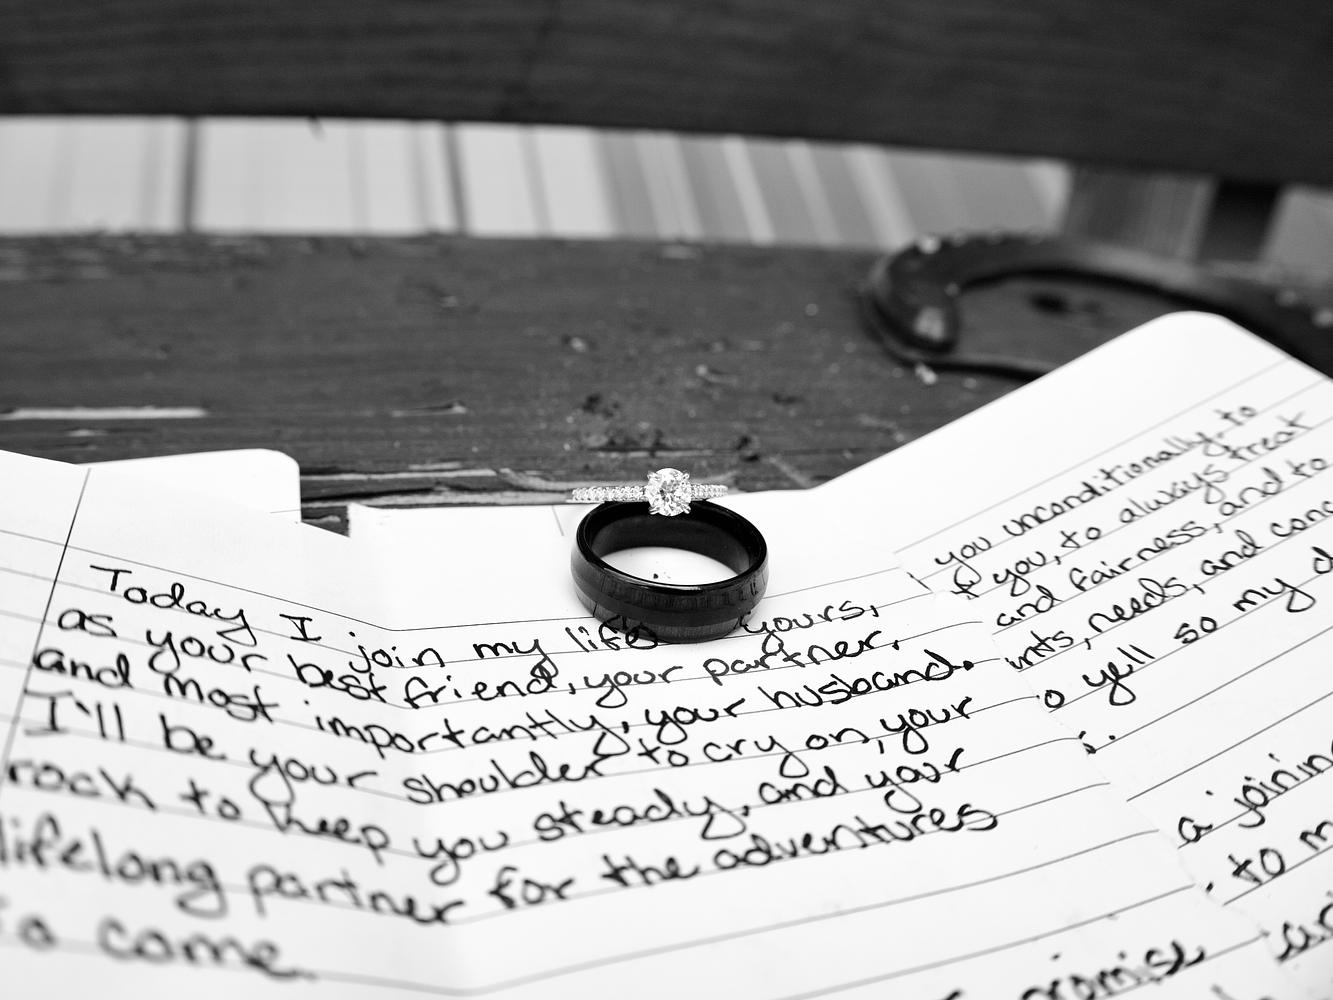 Today I join my life yours,
as your best friend, your partner,
and most importantly, your husband.
I'll be your shoulder to cry on, your
rock to keep you steady, and your
lifelong partner for the adventures
to come.
you unconditionally, to
you, to always treat
and fairness, and to
needs, and
yell so my
a joining
to
promise